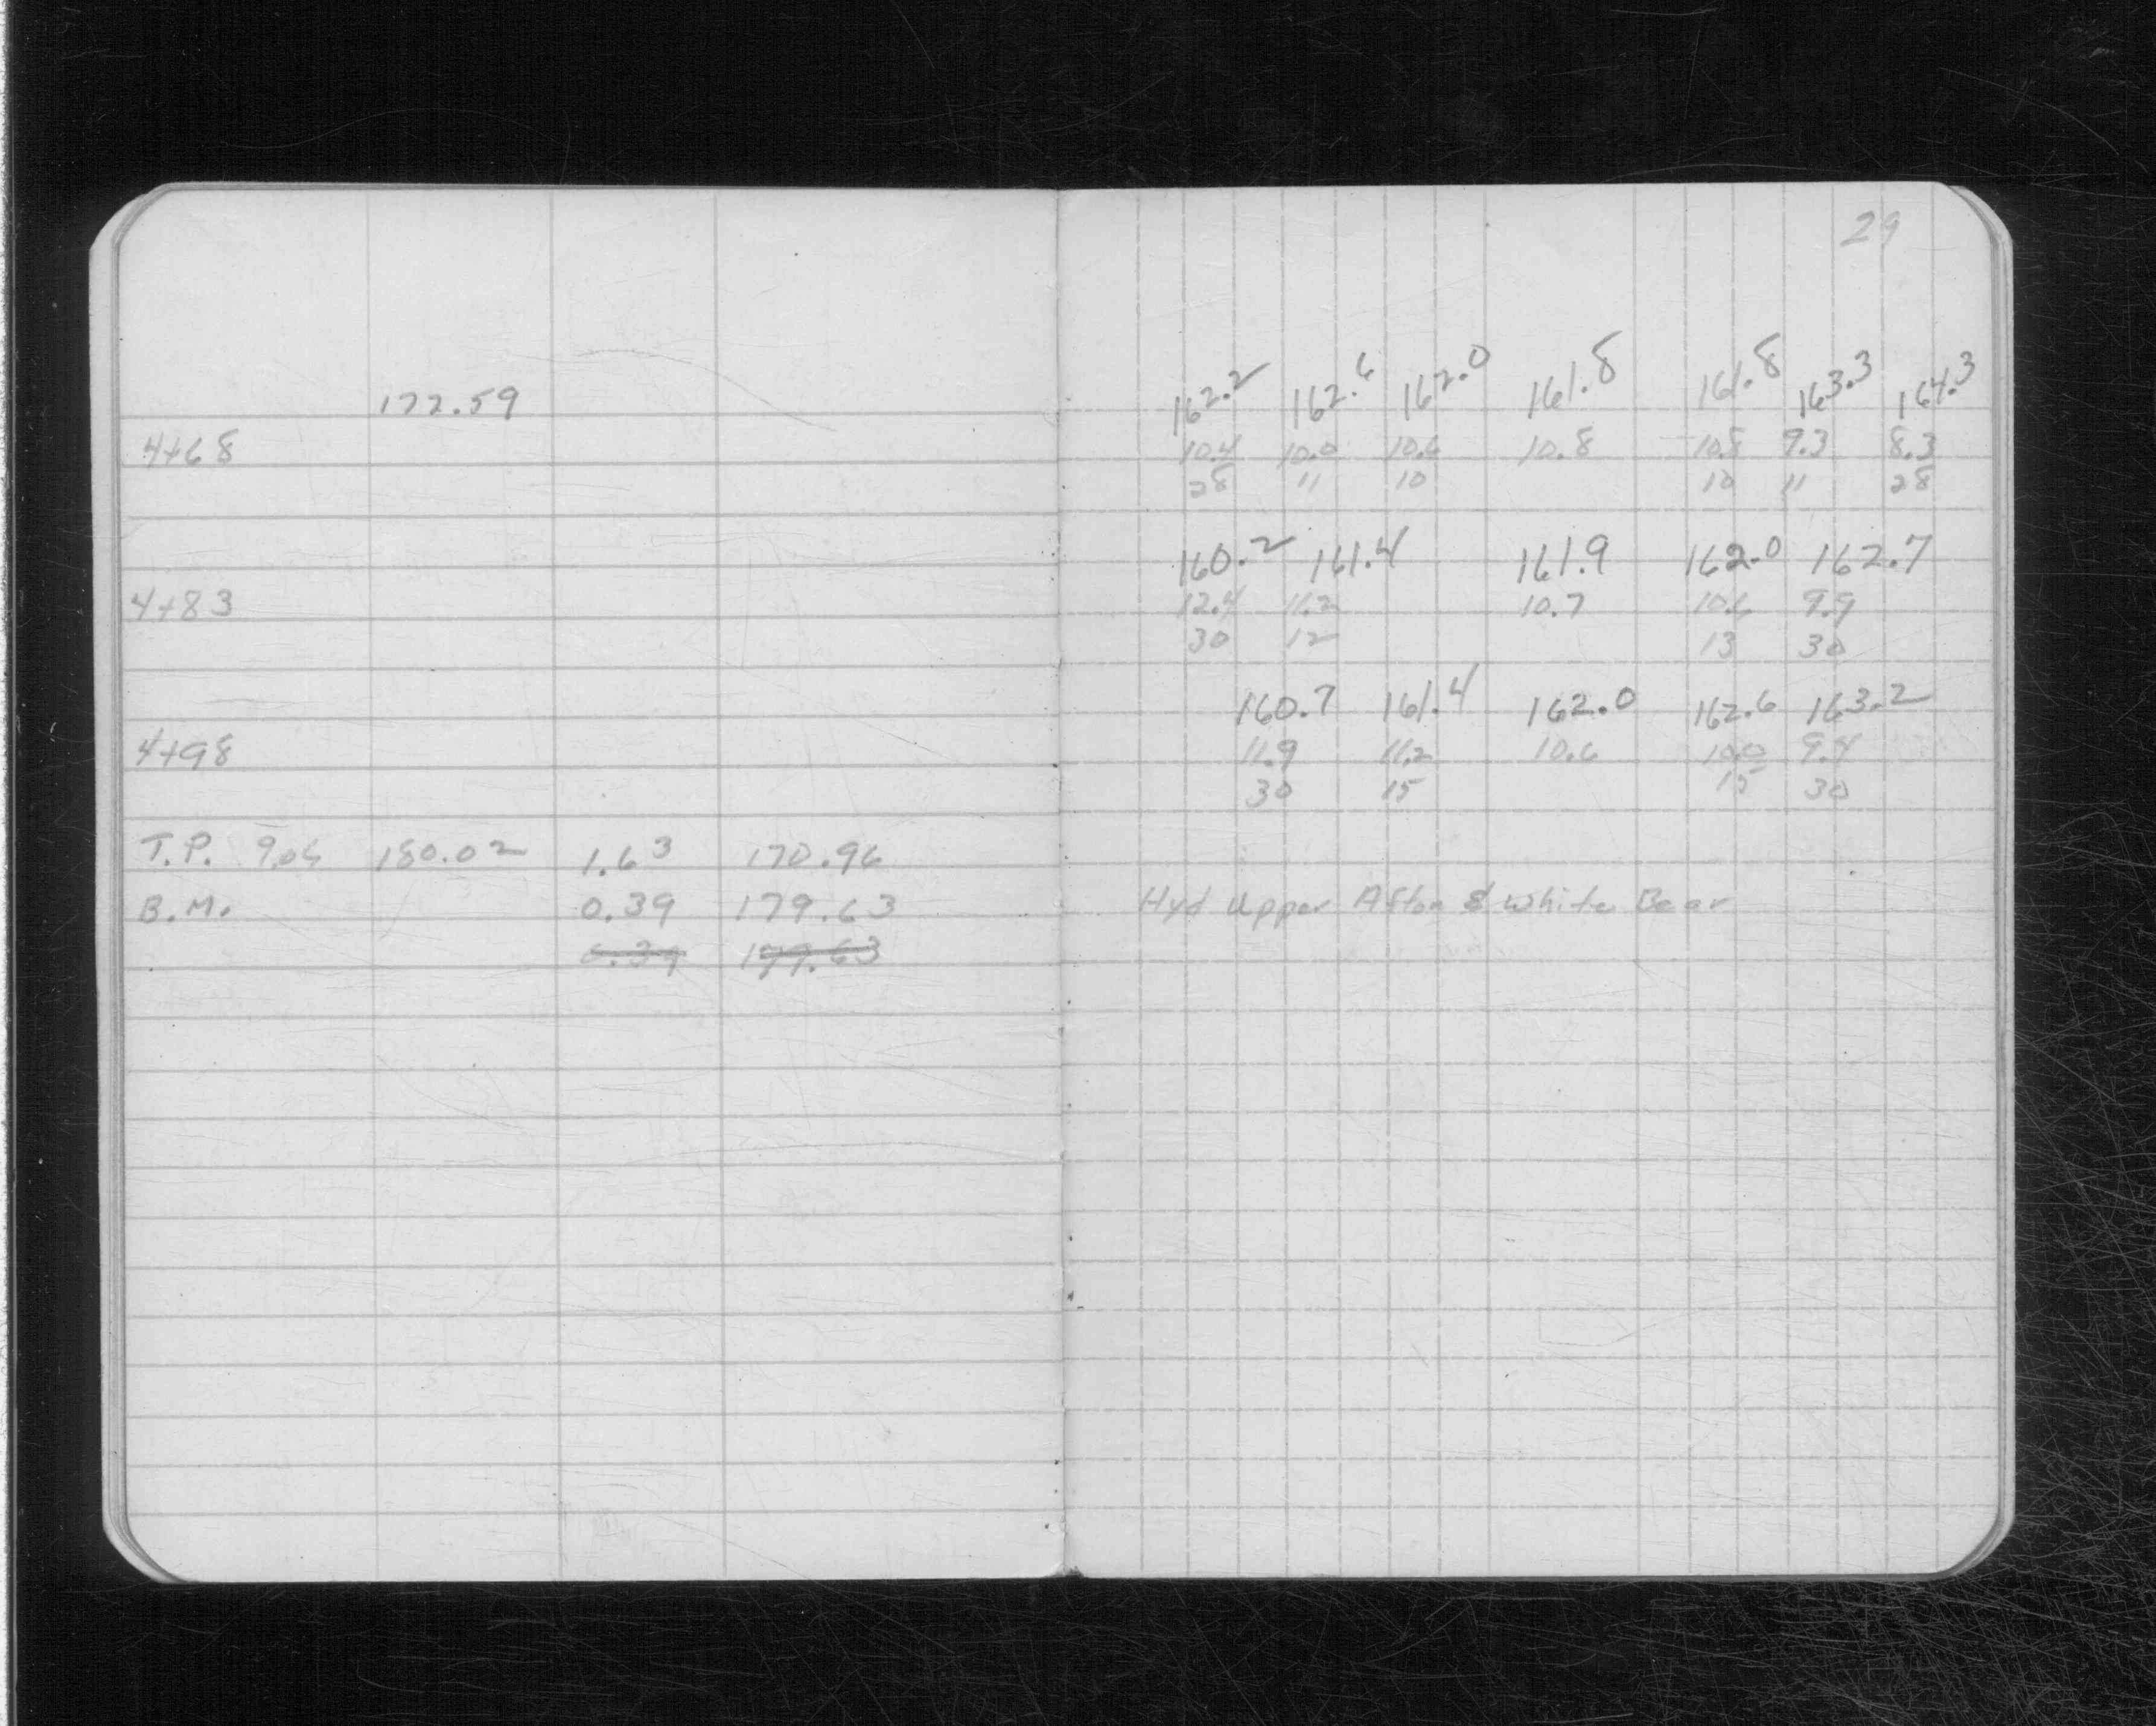 172.59
4+68
4+83
4+98
T.P. 9.06 180.02 1.63 170.96
B.M. 0.39 179.63
0.39 179.63
29
162.2 162.6 162.0 161.8 161.8 163.3 164.3
10.4 10.0 10.6 10.8 10.8 9.3 8.3
28 11 10 10 11 28
160.2 161.4 161.9 162.0 162.7
12.4 11.2 10.7 10.6 9.9
30 12 13 30
160.7 161.4 162.0 162.6 163.2
11.9 11.2 10.6 10.0 9.4
30 15 15 30
Hyd Upper Afton & White Bear